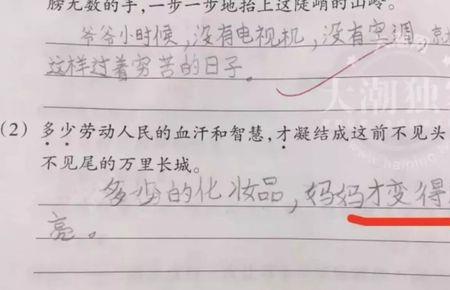 膀无数的手，一步一步地抬上这陡峭的山岭。
爷爷小时候，没有电视机，没有空调，就
这样过着穷苦的日子。
大潮独
(2) 多少劳动人民的血汗和智慧，才凝结成这前不见头
不见尾的万里长城。
多少的化妆品，妈妈才变得
亮。